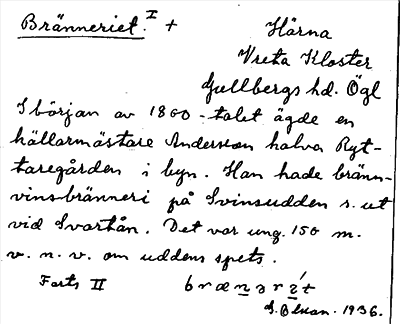 Bränneriet. I +
Härna
Vreta Kloster
Gullbergs hd. Ögl
I början av 1800-talet ägde en
källarmästare Andersson halva Ryt-
taregården i byn. Han hade bränn-
vinsbränneri på Svinsudden s. ut
vid Svartån. Det var ung. 150 m.
v. n. v. om uddens spets.
Forts II brænərít
1936.